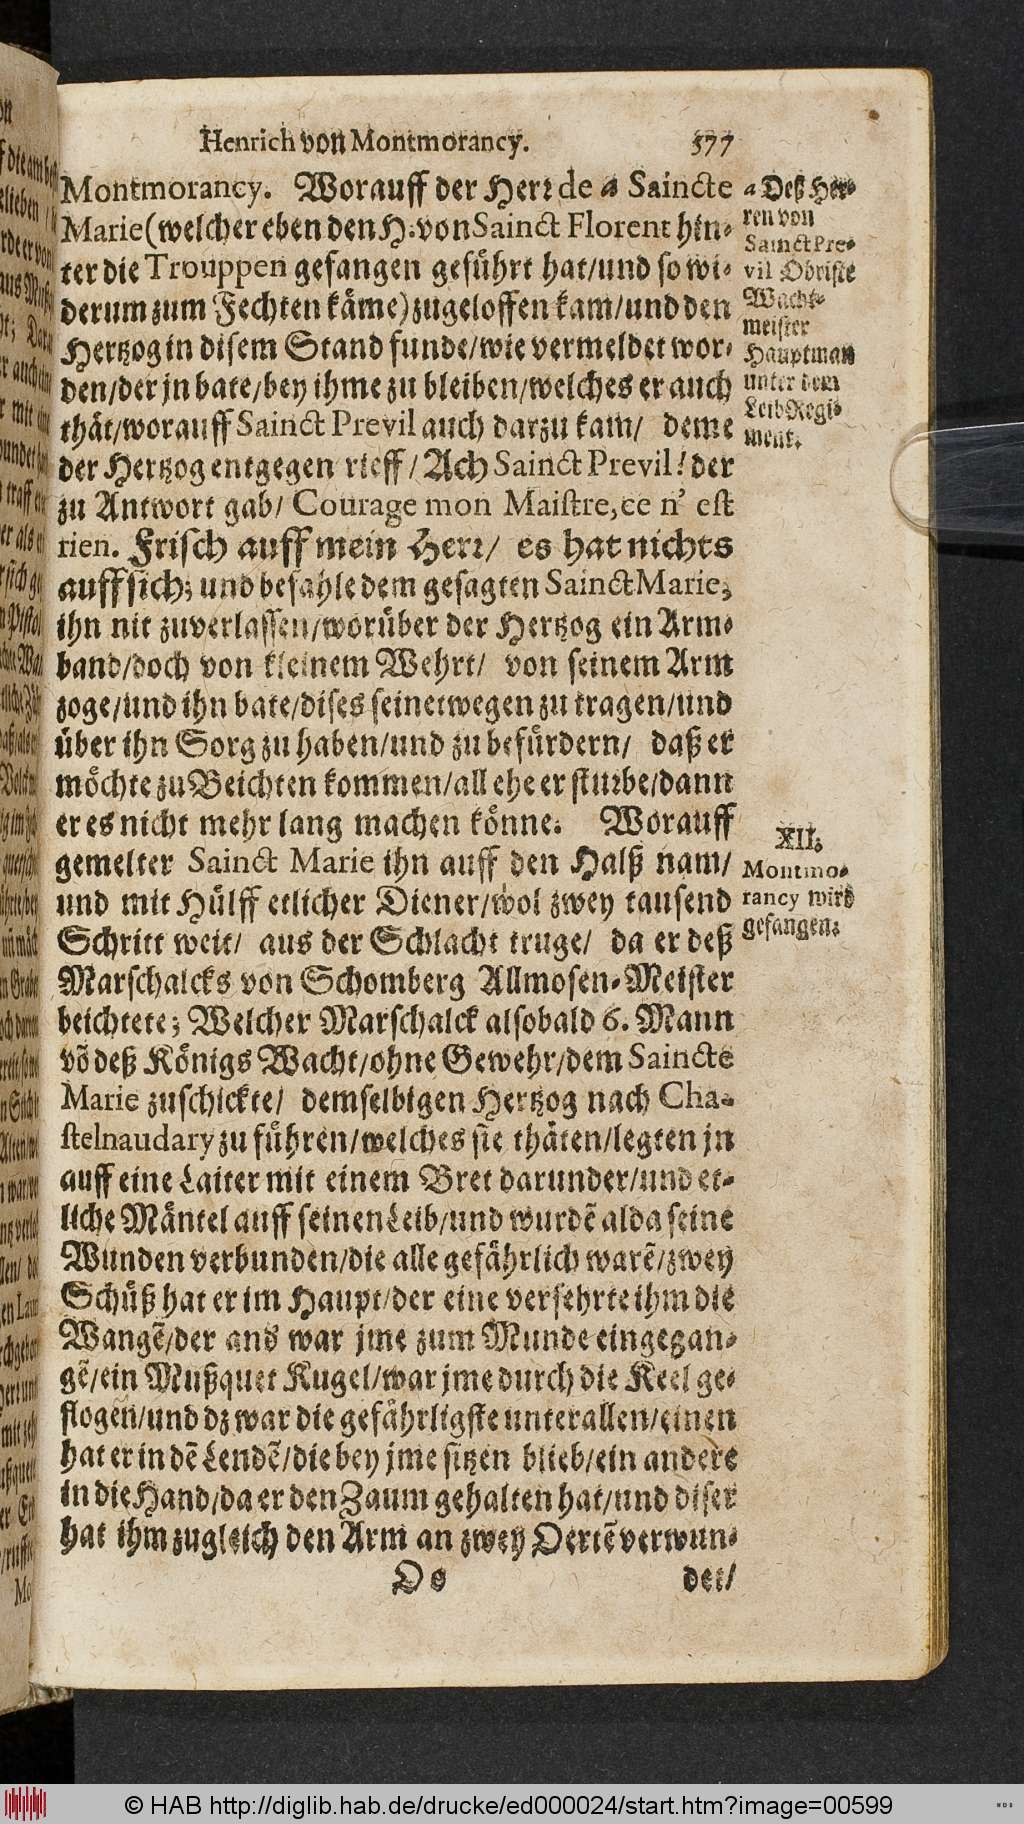 Henrich von Montmorancy. 577
Montmorancy. Worauff der Herr de a Saincte
Marie (welcher eben den H. von Sainct Florent hin-
ter die Trouppen gefangen geführt hat/und so wi-
derum zum Fechten käme) zugeloffen kam/und den
Hertzog in disem Stand funde/wie vermeldet wor-
den/der jn bate/bey ihme zu bleiben/welches er auch
thät/worauff Sainct Previl auch darzu kam/ deme
der Hertzog entgegen rieff/ Ach Sainct Previl! der
zu Antwort gab/ Courage mon Maistre, ce n' est
rien. Frisch auff mein Herr/ es hat nichts
auff sich; und befahle dem gesagten Sainct Marie,
ihn nit zuverlassen/worüber der Hertzog ein Arm-
band/doch von kleinem Wehrt/ von seinem Arm
zoge/und ihn bate/dises seinetwegen zu tragen/und
über ihn Sorg zu haben/und zu befürdern/ daß er
möchte zu Beichten kommen/all ehe er sturbe/dann
er es nicht mehr lang machen könne. Worauff
gemelter Sainct Marie ihn auff den Halß nam/
und mit Hülff etlicher Diener/wol zwey tausend
Schritt weit/ aus der Schlacht truge/ da er deß
Marschalcks von Schomberg Allmosen-Meister
beichtete; Welcher Marschalck alsobald 6. Mann
võ deß Königs Wacht/ohne Gewehr/dem Saincte
Marie zuschickte/ demselbigen Hertzog nach Cha-
stelnaudary zu führen/welches sie thäten/legten jn
auff eine Laiter mit einem Bret darunder/und et-
liche Mäntel auff seinen Leib/und wurdẽ alda seine
Wunden verbunden/die alle gefährlich warẽ/zwey
Schüß hat er im Haupt/der eine versehrte ihm die
Wangẽ/der ans war jme zum Munde eingegan-
gẽ/ein Mußquet Kugel/war jme durch die Keel ge-
flogen/und dz war die gefährligste unter allen/einen
hat er in dẽ Lendẽ/die bey jme sitzen blieb/ein andere
in die Hand/da er den Zaum gehalten hat/und diser
hat ihm zugleich den Arm an zwey Oertẽ verwun-
Oo det/
a Deß Her-
ren von
Sainct Pre-
vil Obriste
Wacht-
meister
Hauptman
unter dem
Leib Regi-
ment.
XII.
Montmo-
rancy wird
gefangen.
© HAB http://diglib.hab.de/drucke/ed000024/start.htm?image=00599